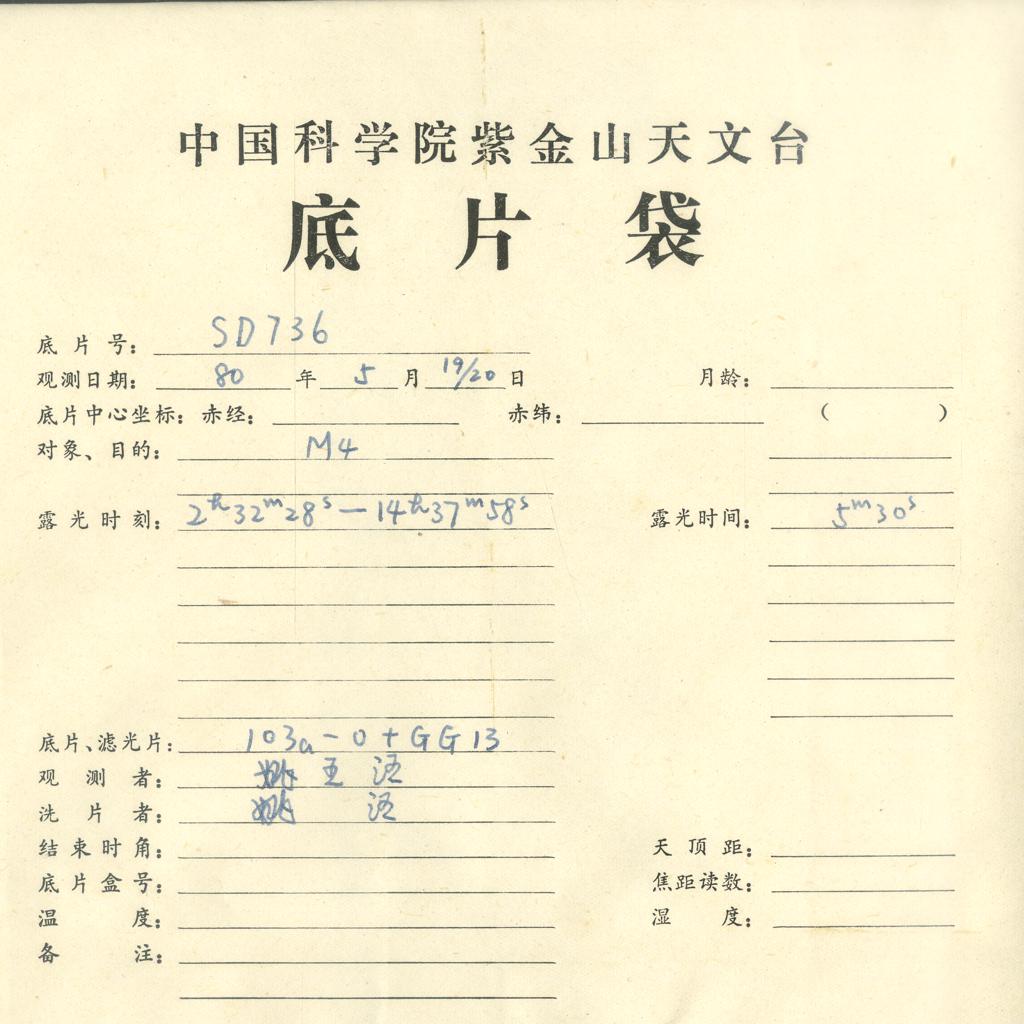 中国科学院紫金山天文台
底片袋
底片号: SD736
观测日期: 80 年 5 月 19/20 日 月龄:
底片中心坐标: 赤经: 赤纬: ( )
对象、目的: M4
露光时刻: 2ʰ32ᵐ28ˢ—14ʰ37ᵐ58ˢ 露光时间: 5ᵐ30ˢ
底片、滤光片: 103a-0+GG13
观测者: 姚 王
洗片者: 姚
结束时角: 天顶距:
底片盒号: 焦距读数:
温度: 湿度:
备注: